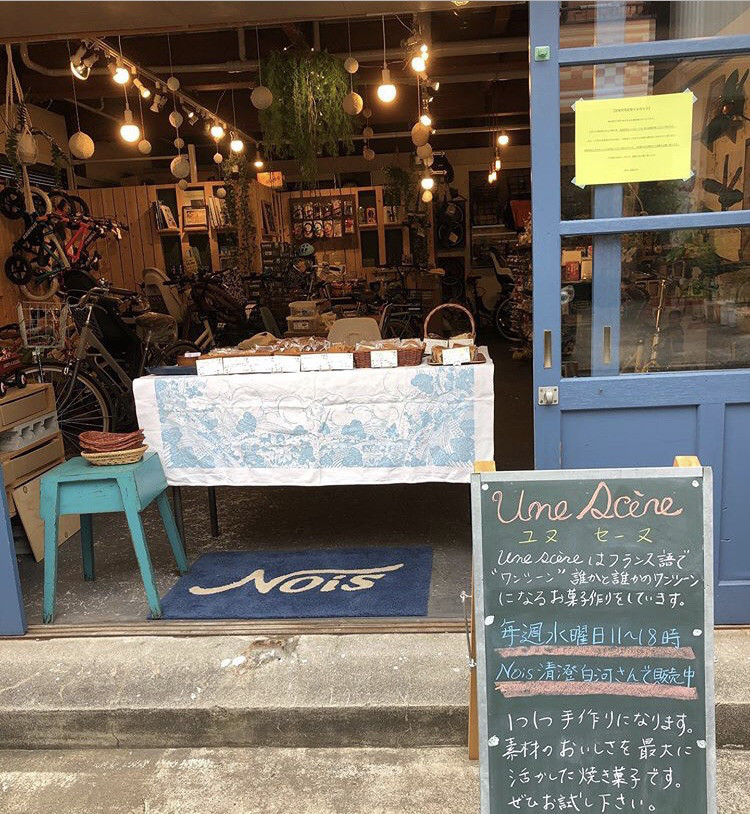 Nois
Une Scène
ユヌ セーヌ
Une scène はフランス語で
"ワンシーン" 誰かと誰かのワンシーン
になるお菓子作りをしています。
毎週水曜日11〜18時
Nois 清澄白河さんで販売中
1つ1つ手作りになります。
素材のおいしさを最大に
活かした焼き菓子です。
ぜひお試し下さい。